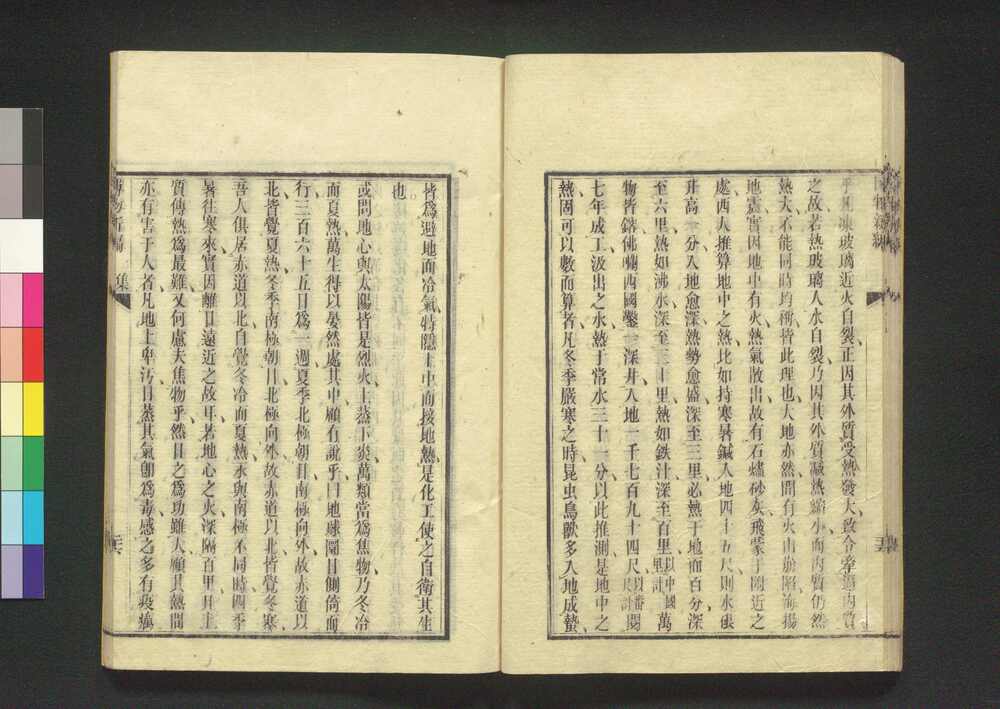 乎凡凍玻璃近火自裂正因其外質受熱發大致令牽連內質
之故若熱玻璃人水自裂乃因其外質減熱縮小而內質仍然
熱大不能同時均稱皆此理也大地亦然間有火山崩陷海揚
地震實因地中有火熱氣散出故有石爐砂灰飛蒙于附近之
處西人推算地中之熱比如持寒暑鍼人地四十五尺則水銀
升高一分入地愈深熱勢愈盛深至三里必熱于地面百分深
至六里熱如沸水深至三十里熱如鉄汁深至百里以中國里計萬
物皆鎔佛囒西國鑿一深井入地一千七百九十四尺以番尺計閱
七年成工汲出之水熱于常水三十一分以此推測是地中之
熱固可以數而算者凡冬季嚴寒之時昆虫鳥獸多入地成蟄
皆為避地面冷氣特隱土中南接地熱是化工使之自衛其生
也
或問地心與太陽皆是烈火上蒸下炎萬類當為焦物乃冬冷
而夏熱萬生得以晏然處其中顧有說乎曰地球圜日側倚而
行三百六十五日為一週夏季北極朝日南極向外故赤道以
北皆覺夏熱冬季南極朝日北極向外故赤道以北皆覺冬寒
吾人俱居赤道以北自覺冬冷而夏熱永與南極不同時四季
暑往寒來實因離日遠近之故耳若地心之火深隔百里用土
質傳熱為最難又何慮夫焦物乎然日之為功雖大顧其熱間
亦有害于人者凡地上卑污日蒸其氣卽為毒感之多有疫癘
博物新編
集